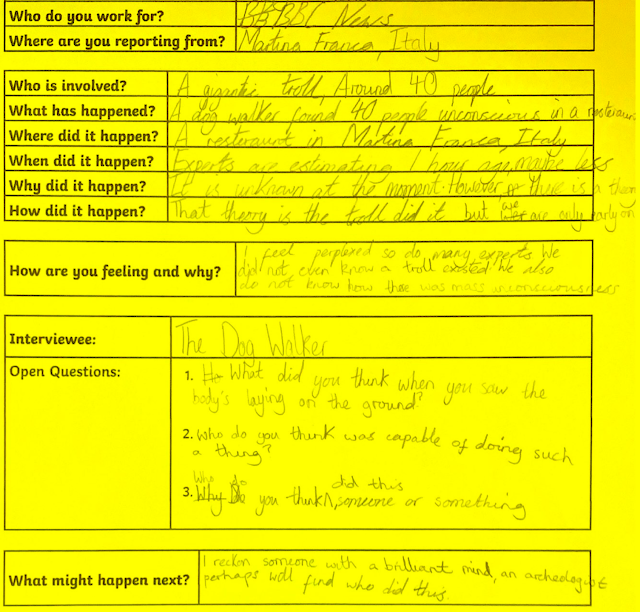 Who do you work for? BBC News
Where are you reporting from? Martina Franca, Italy
Who is involved? A gigantic troll, Around 40 people
What has happened? A dog walker found 40 people unconscious in a resteraunt
Where did it happen? A resteraunt in Martina Franca, Italy
When did it happen? Experts are estimating 1 hour ago, maybe less
Why did it happen? It is unknown at the moment. However, there is a theory
How did it happen? That theory is the troll did it but we are only early on
How are you feeling and why?
I feel perplexed so do many experts We
did not even know a troll existed We also
do not know how there was mass unconsciousness
Interviewee: The Dog Walker
Open Questions:
1. What did you think when you saw the
body's laying on the ground?
2. Who do you think was capable of doing such
a thing?
3. Who do you think did this, someone or something
What might happen next?
I reckon someone with a brilliant mind, an archeologist
perhaps will find who did this.